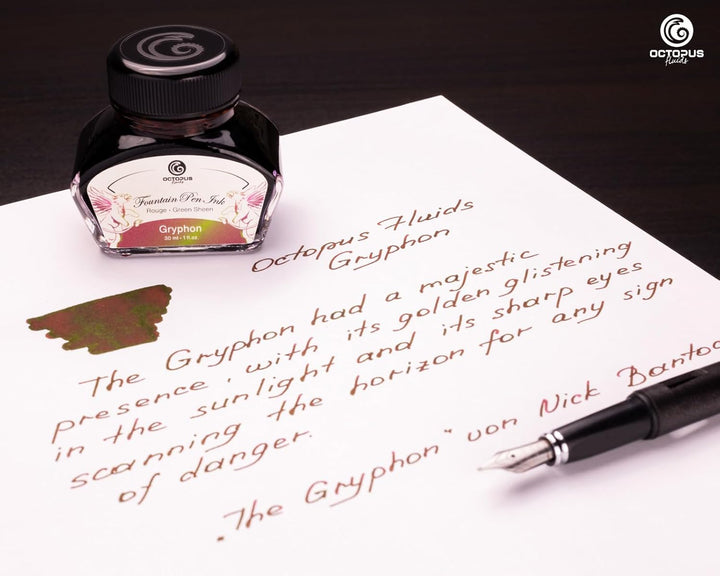 OCTOPUS
fluids
OCTOPUS
fluids
Fountain Pen Ink
Rouge - Green Sheen
Gryphon
30 ml - 1 fl oz.
Octopus Fluids
Gryphon
The Gryphon had a majestic
presence, with its golden glistening
in the sunlight and its sharp eyes
scanning the horizon for any sign
of danger.
„The Gryphon“ von Nick Bantoc